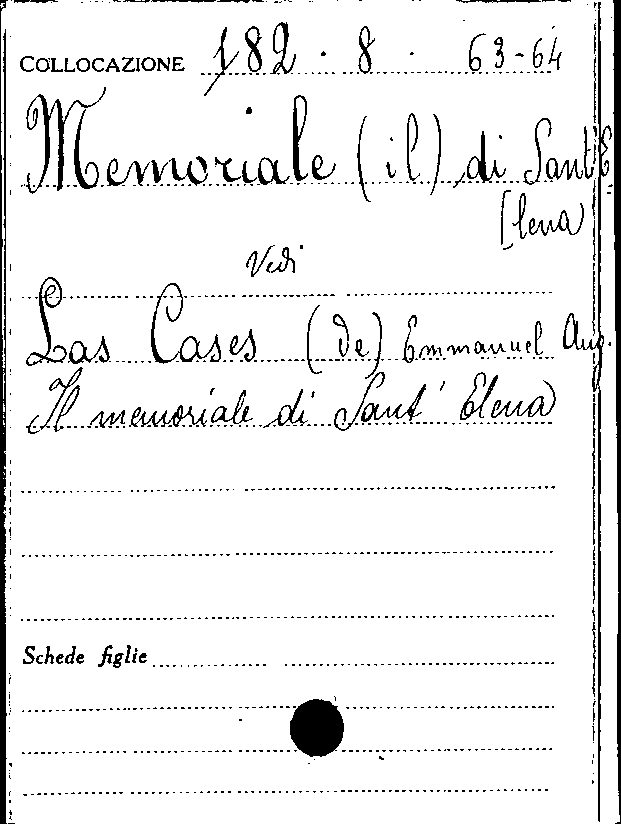 COLLOCAZIONE 182 · 8 · 63-64
Memoriale (il) di Sant'E
[lena
Vedi
Las Cases (de) Emmanuel Aug.
Il memoriale di Sant' Elena
Schede figlie